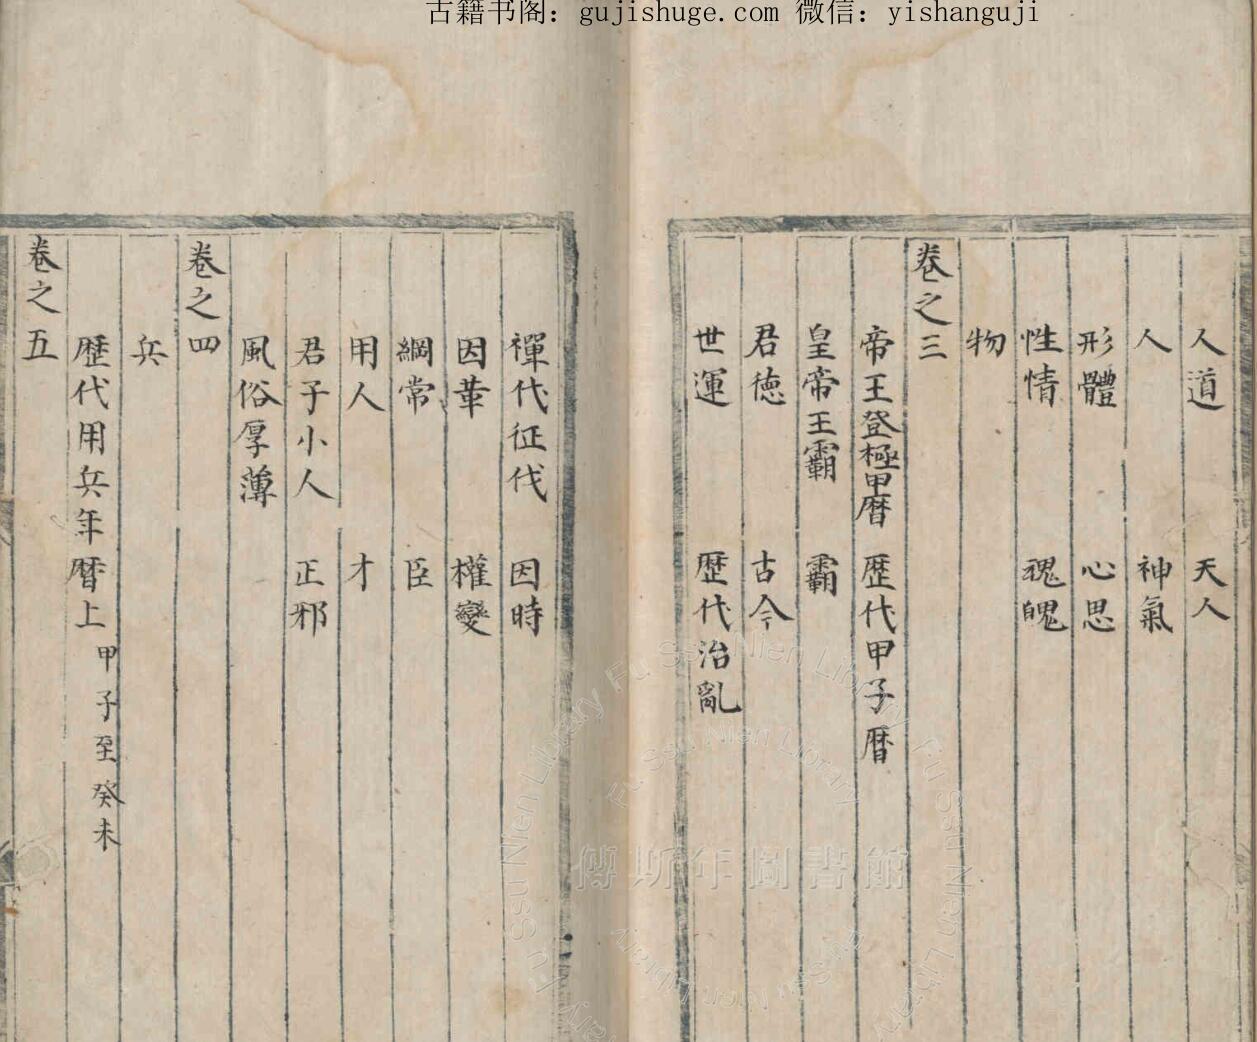 古籍书阁：gujishuge.com 微信：yishanguji
人道 天人
人 神氣
形體 心思
性情 魂魄
物
卷之三
帝王登極甲暦 歴代甲子暦
皇帝王霸 霸
君徳 古今
世運 歴代治亂
禪代征伐 因時
因革 權變
綱常 臣
用人 才
君子小人 正邪
風俗厚薄
卷之四
兵
歴代用兵年暦上 甲子至癸未
卷之五
傅斯年圖書館
Fu Ssu Nien Library